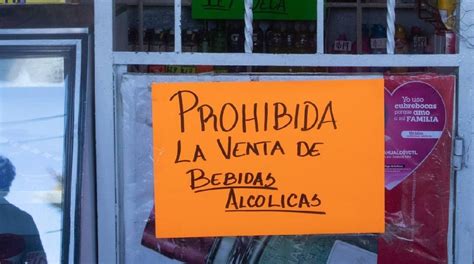 LEY SECA
PROHIBIDA
LA VENTA DE
BEBIDAS
ALCOLICAS
Yo uso
cubrebocas
porque amo
a mi
FAMILIA